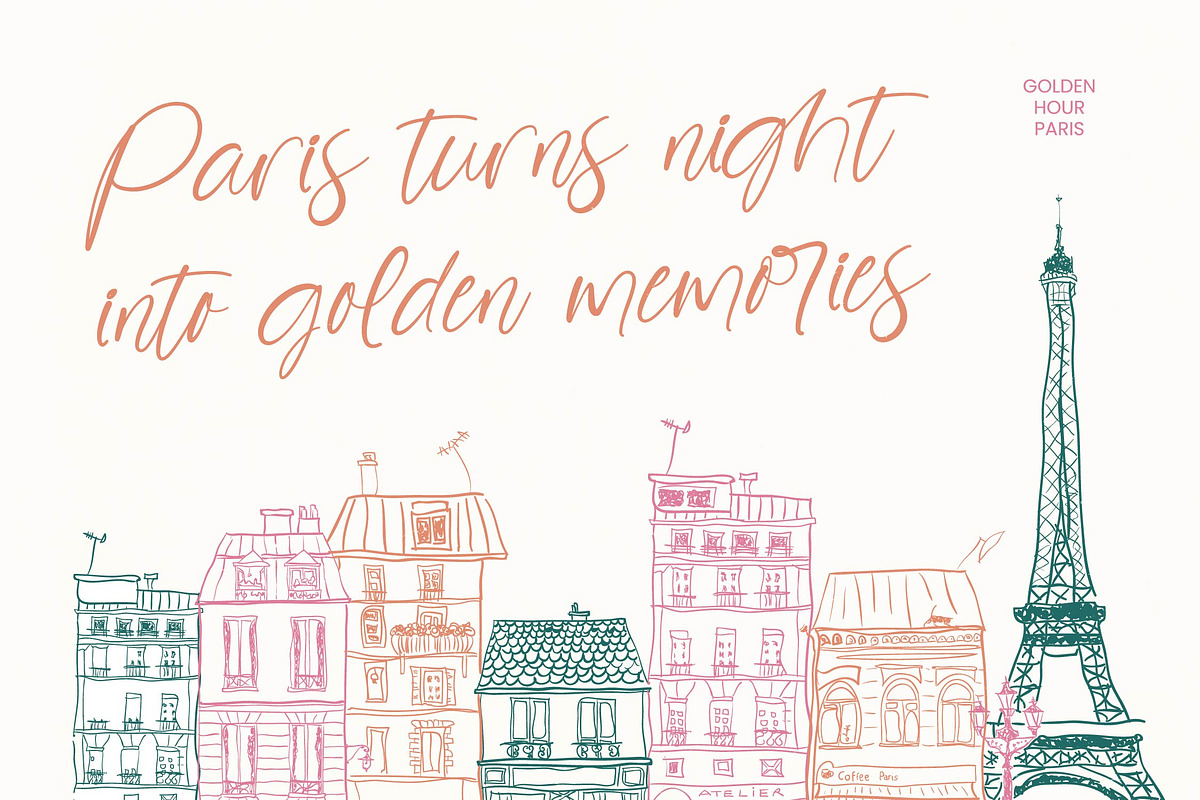 Paris turns night
into golden memories
GOLDEN
HOUR
PARIS
ATELIER
Coffee Paris